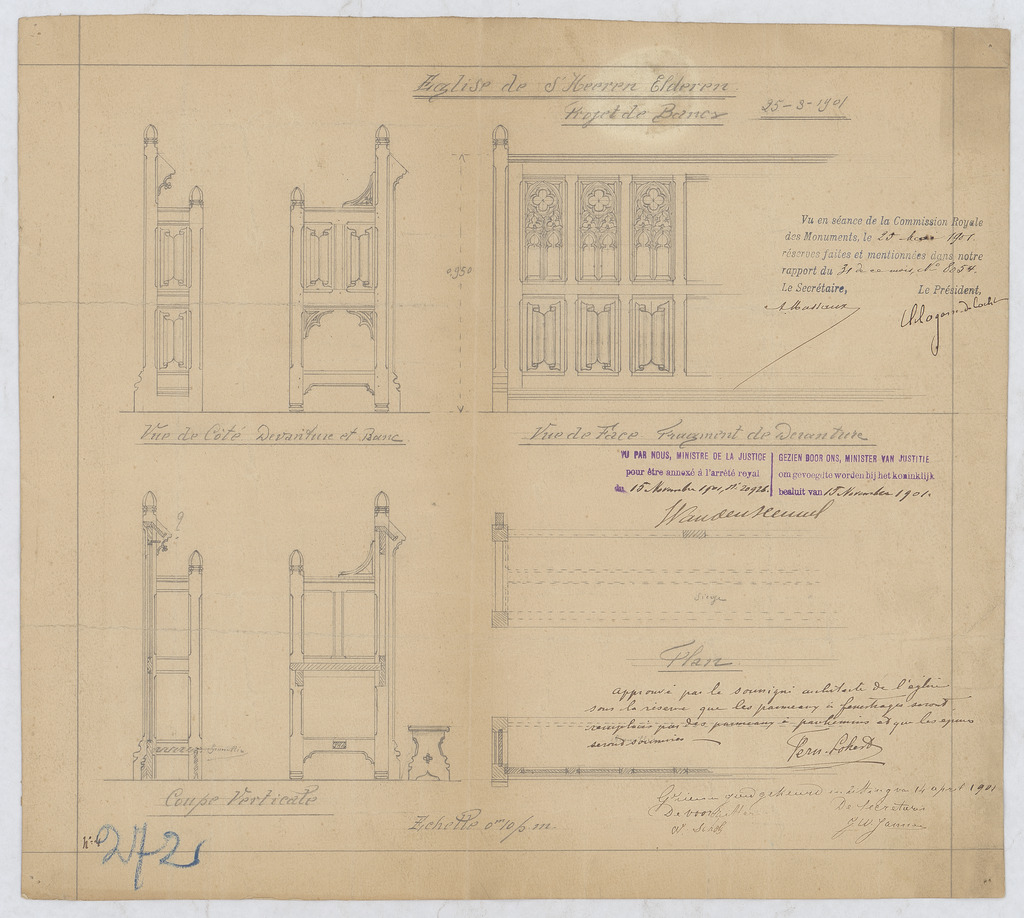 Eglise de S' Heeren Elderen
Projet de Bancs
25-3-1901
0,950
Vu en séance de la Commission Royale
des Monuments, le 25 1901.
réserves faites et mentionnées dans notre
rapport du 31 de ce mois, N° 8054.
Le Secrétaire,
Le Président,
A. Massaux
Vue de Côté Devanture et Banc
Vue de Face Fragment de Devanture
VU PAR NOUS, MINISTRE DE LA JUSTICE
pour être annexé à l'arrêté royal
du 15 Novembre 1901, N° 20926.
GEZIEN DOOR ONS, MINISTER VAN JUSTITIE
om gevoegd te worden bij het koninklijk
besluit van 15 November 1901.
Siège
Plan
Approuvé par le soussigné architecte de l'église
sous la réserve que les panneaux à fenestrages seront
remplacés par des panneaux à parchemins et que les
seront soumises
Coupe Verticale
Echelle 0m10 p. m.
goedgekeurd in zitting van 14 april 1901
De voorzitter
De Secretaris
n° 4
272